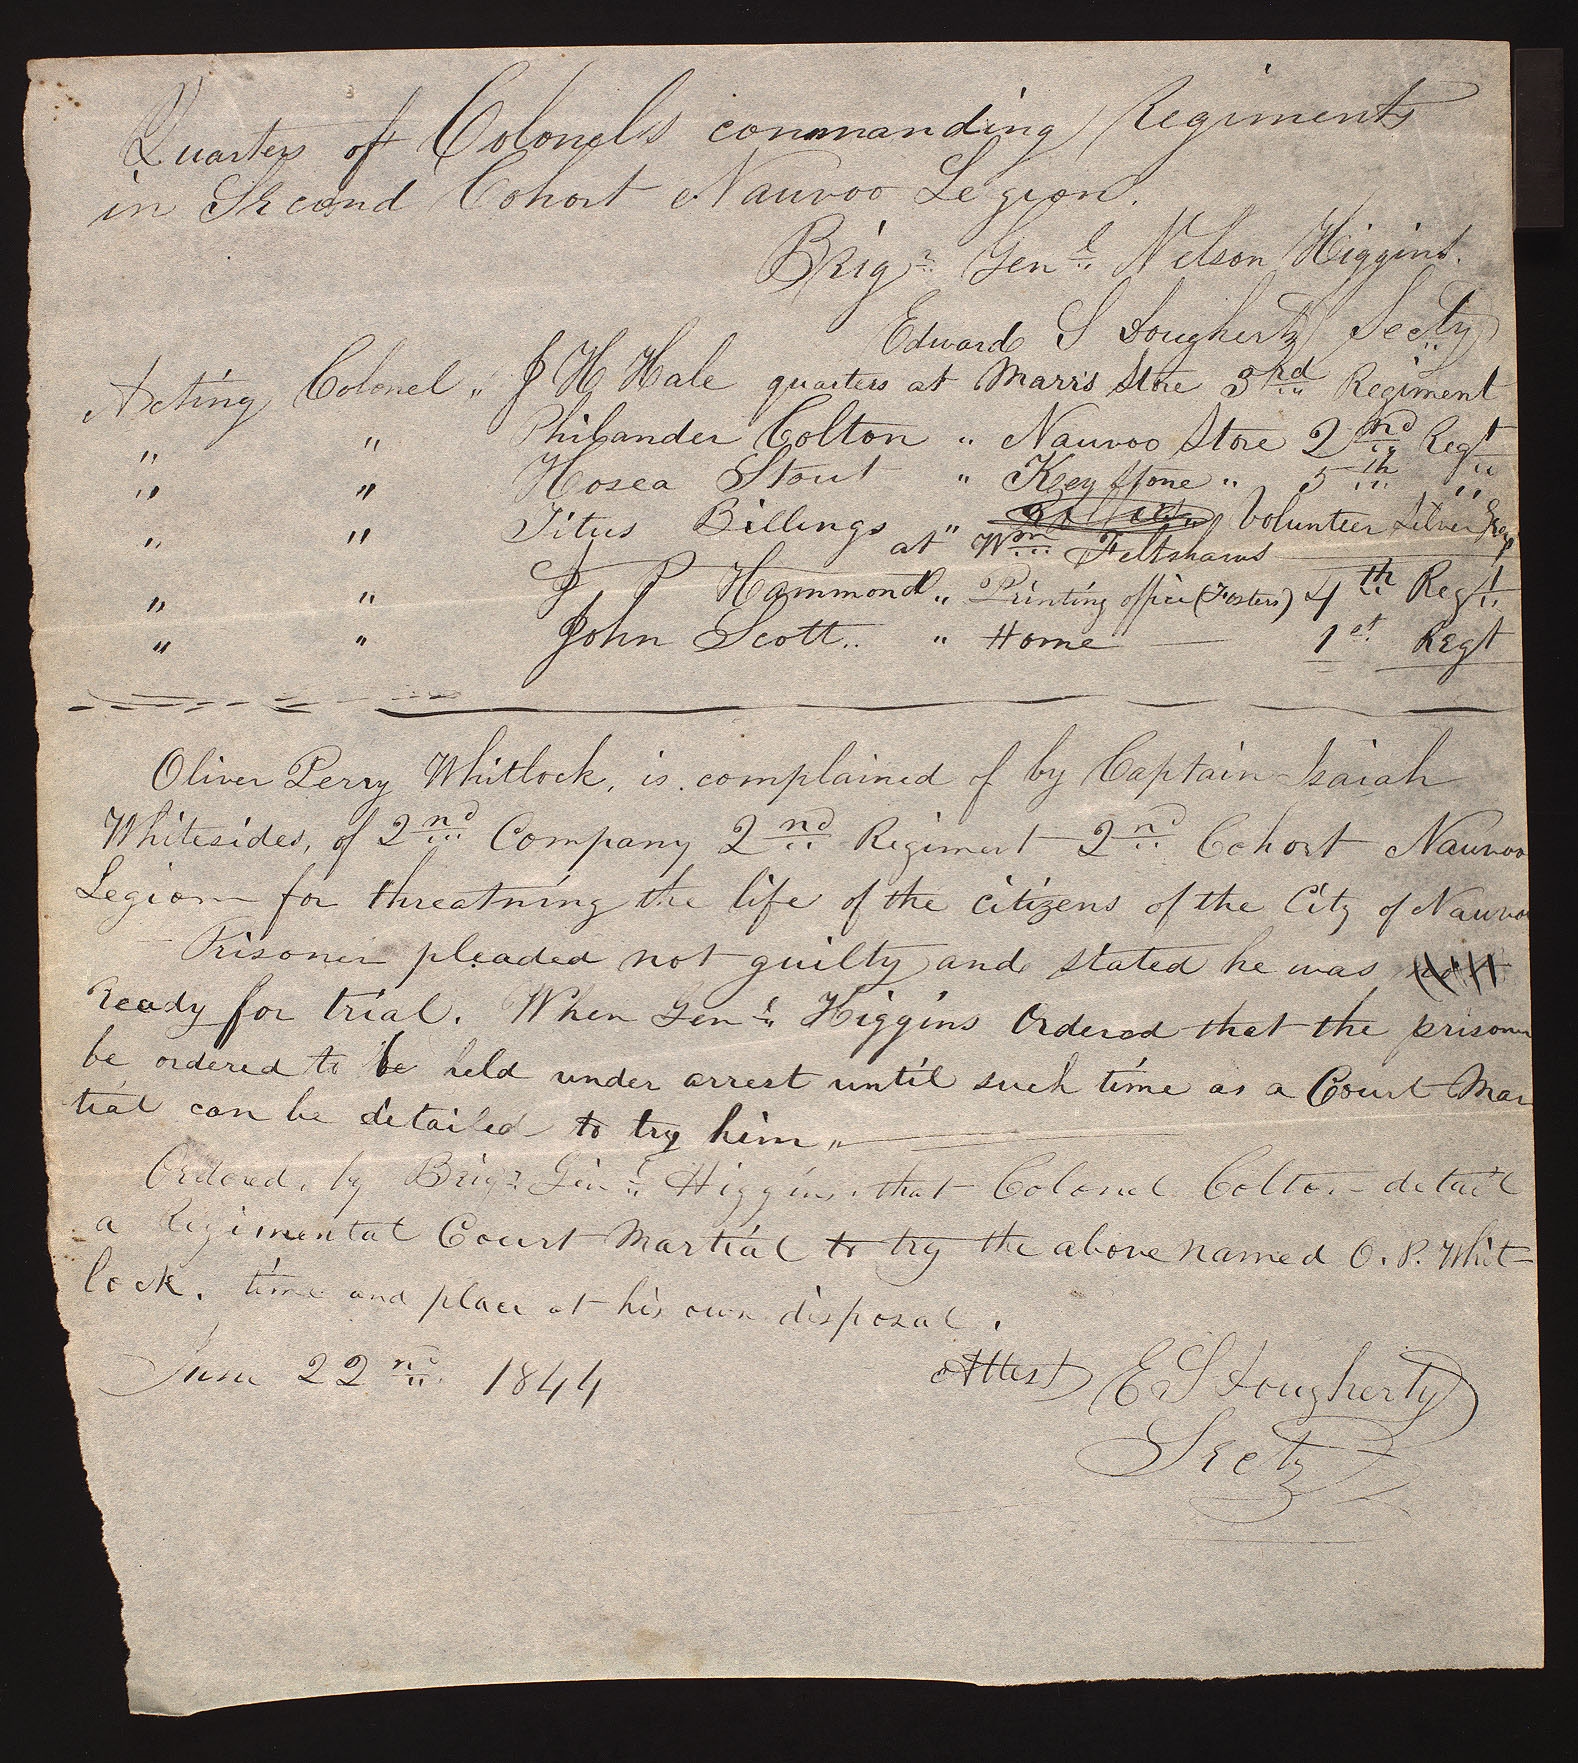 Quarters of Colonels commanding Regiments
in Second Cohort Nauvoo Legion.
Brigr. Genl. Nelson Higgins.
Edward S Dougherty Secty
Acting Colonel " J H Hale quarters at Marrs Store 3rd Regiment
" " Philander Colton " Nauvoo Store 2nd Regt
" " Hosea Stout " Key Stone " 5th "
" " Titus Billings " Volunteer Silver Greys
at Wm Feltshaws
" " J P Hammond " Printing office (Fosters) 4th Regt.
" " John Scott.. " Home — 1st Regt
Oliver Perry Whitlock, is complained of by Captain Isaiah
Whitesides, of 2nd Company 2nd Regiment 2nd Cohort Nauvoo
Legion — for threatning the life of the citizens of the City of Nauvoo
Prisoner pleaded not guilty and stated he was not
Ready for trial. When Genl. Higgins Ordered that the prisoner
be ordered to be held under arrest until such time as a Court Mar
tial can be detailed to try him "
Ordered, by Brigr. Genl. Higgins. that Colonel Colton — detail
a Regimental Court Martial to try the above named O. P. Whit=
lock. time and place at his own disposal.
June 22nd. 1844 Attest E S Dougherty
Secty